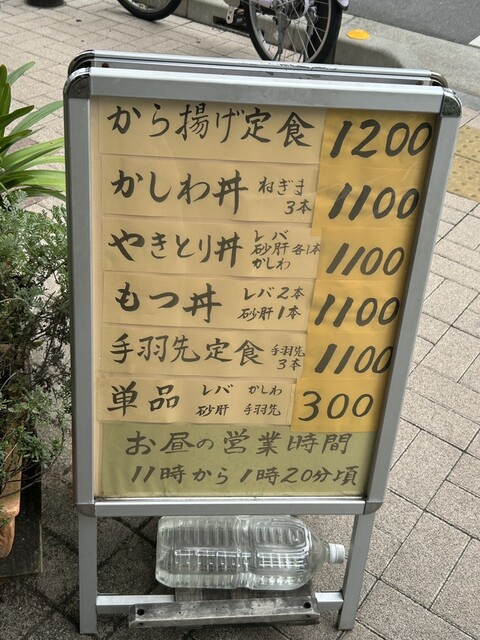 から揚げ定食 1200
かしわ丼 ねぎま 3本 1100
やきとり丼 レバ 砂肝 各1本 かしわ 1100
もつ丼 レバ2本 砂肝1本 1100
手羽先定食 手羽先 3本 1100
単品 レバ かしわ 砂肝 手羽先 300
お昼の営業時間
11時から1時20分頃